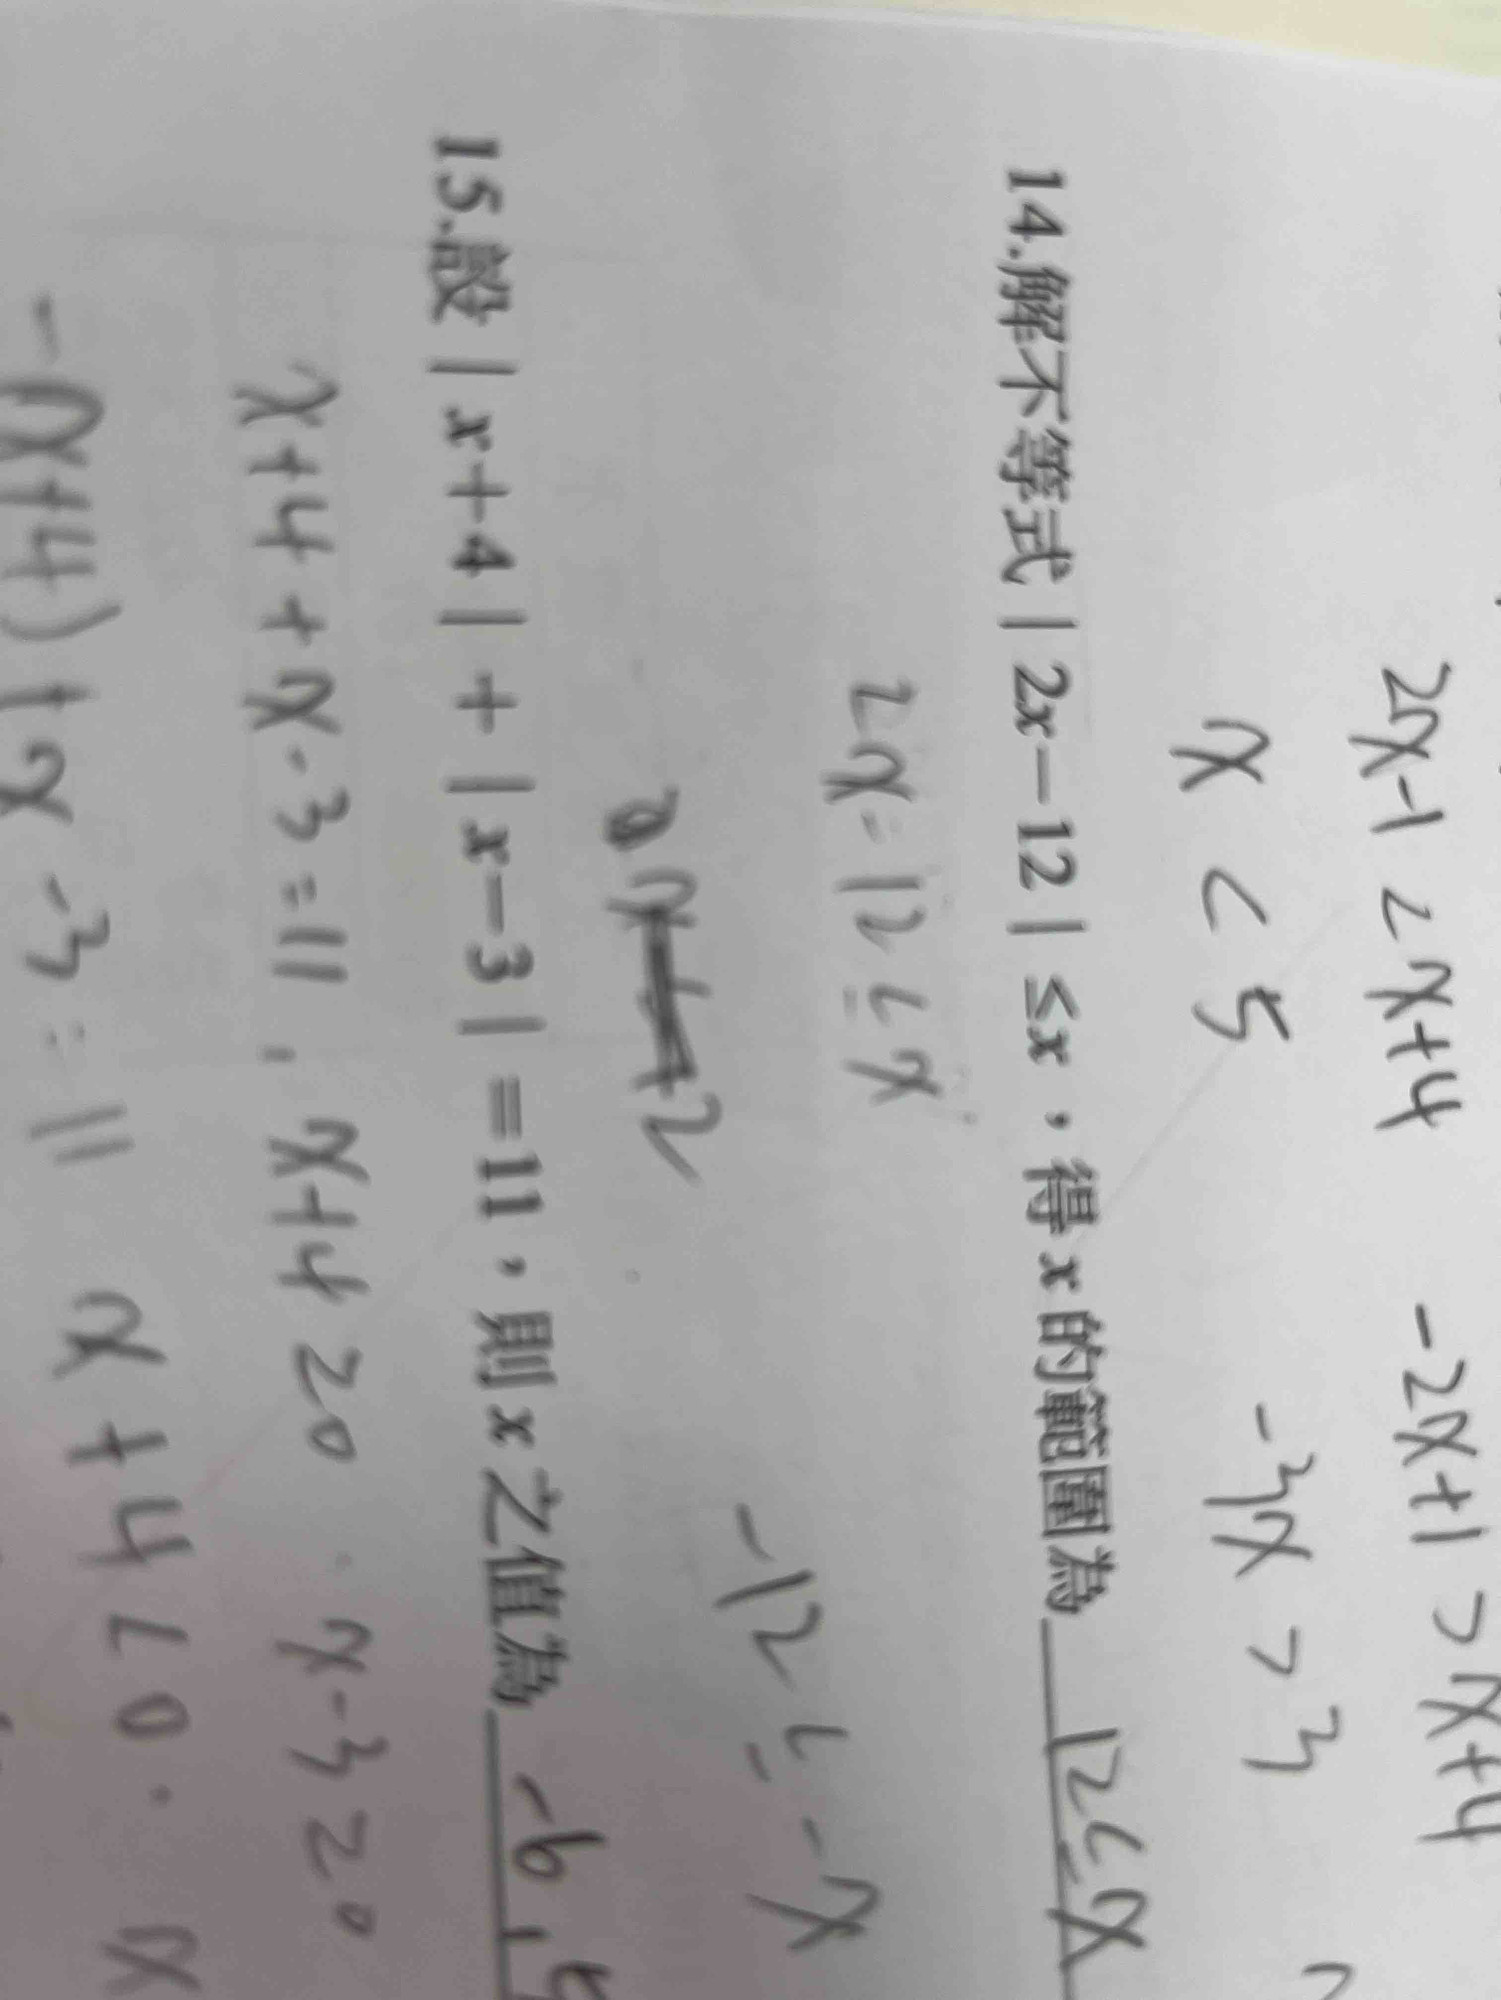 2x-1<x+4  -2x+1>x+4
x<5  -3x>3
14.解不等式|2x-12|≤x，得x的範圍為 12≤x
2x-12≤x
-12≤-x
15.設|x+4|+|x-3|=11，則x之值為 -6,5
x+4+x-3=11, x+4≥0. x-3≥0
-(x+4)+x-3=11 x+4<0. x